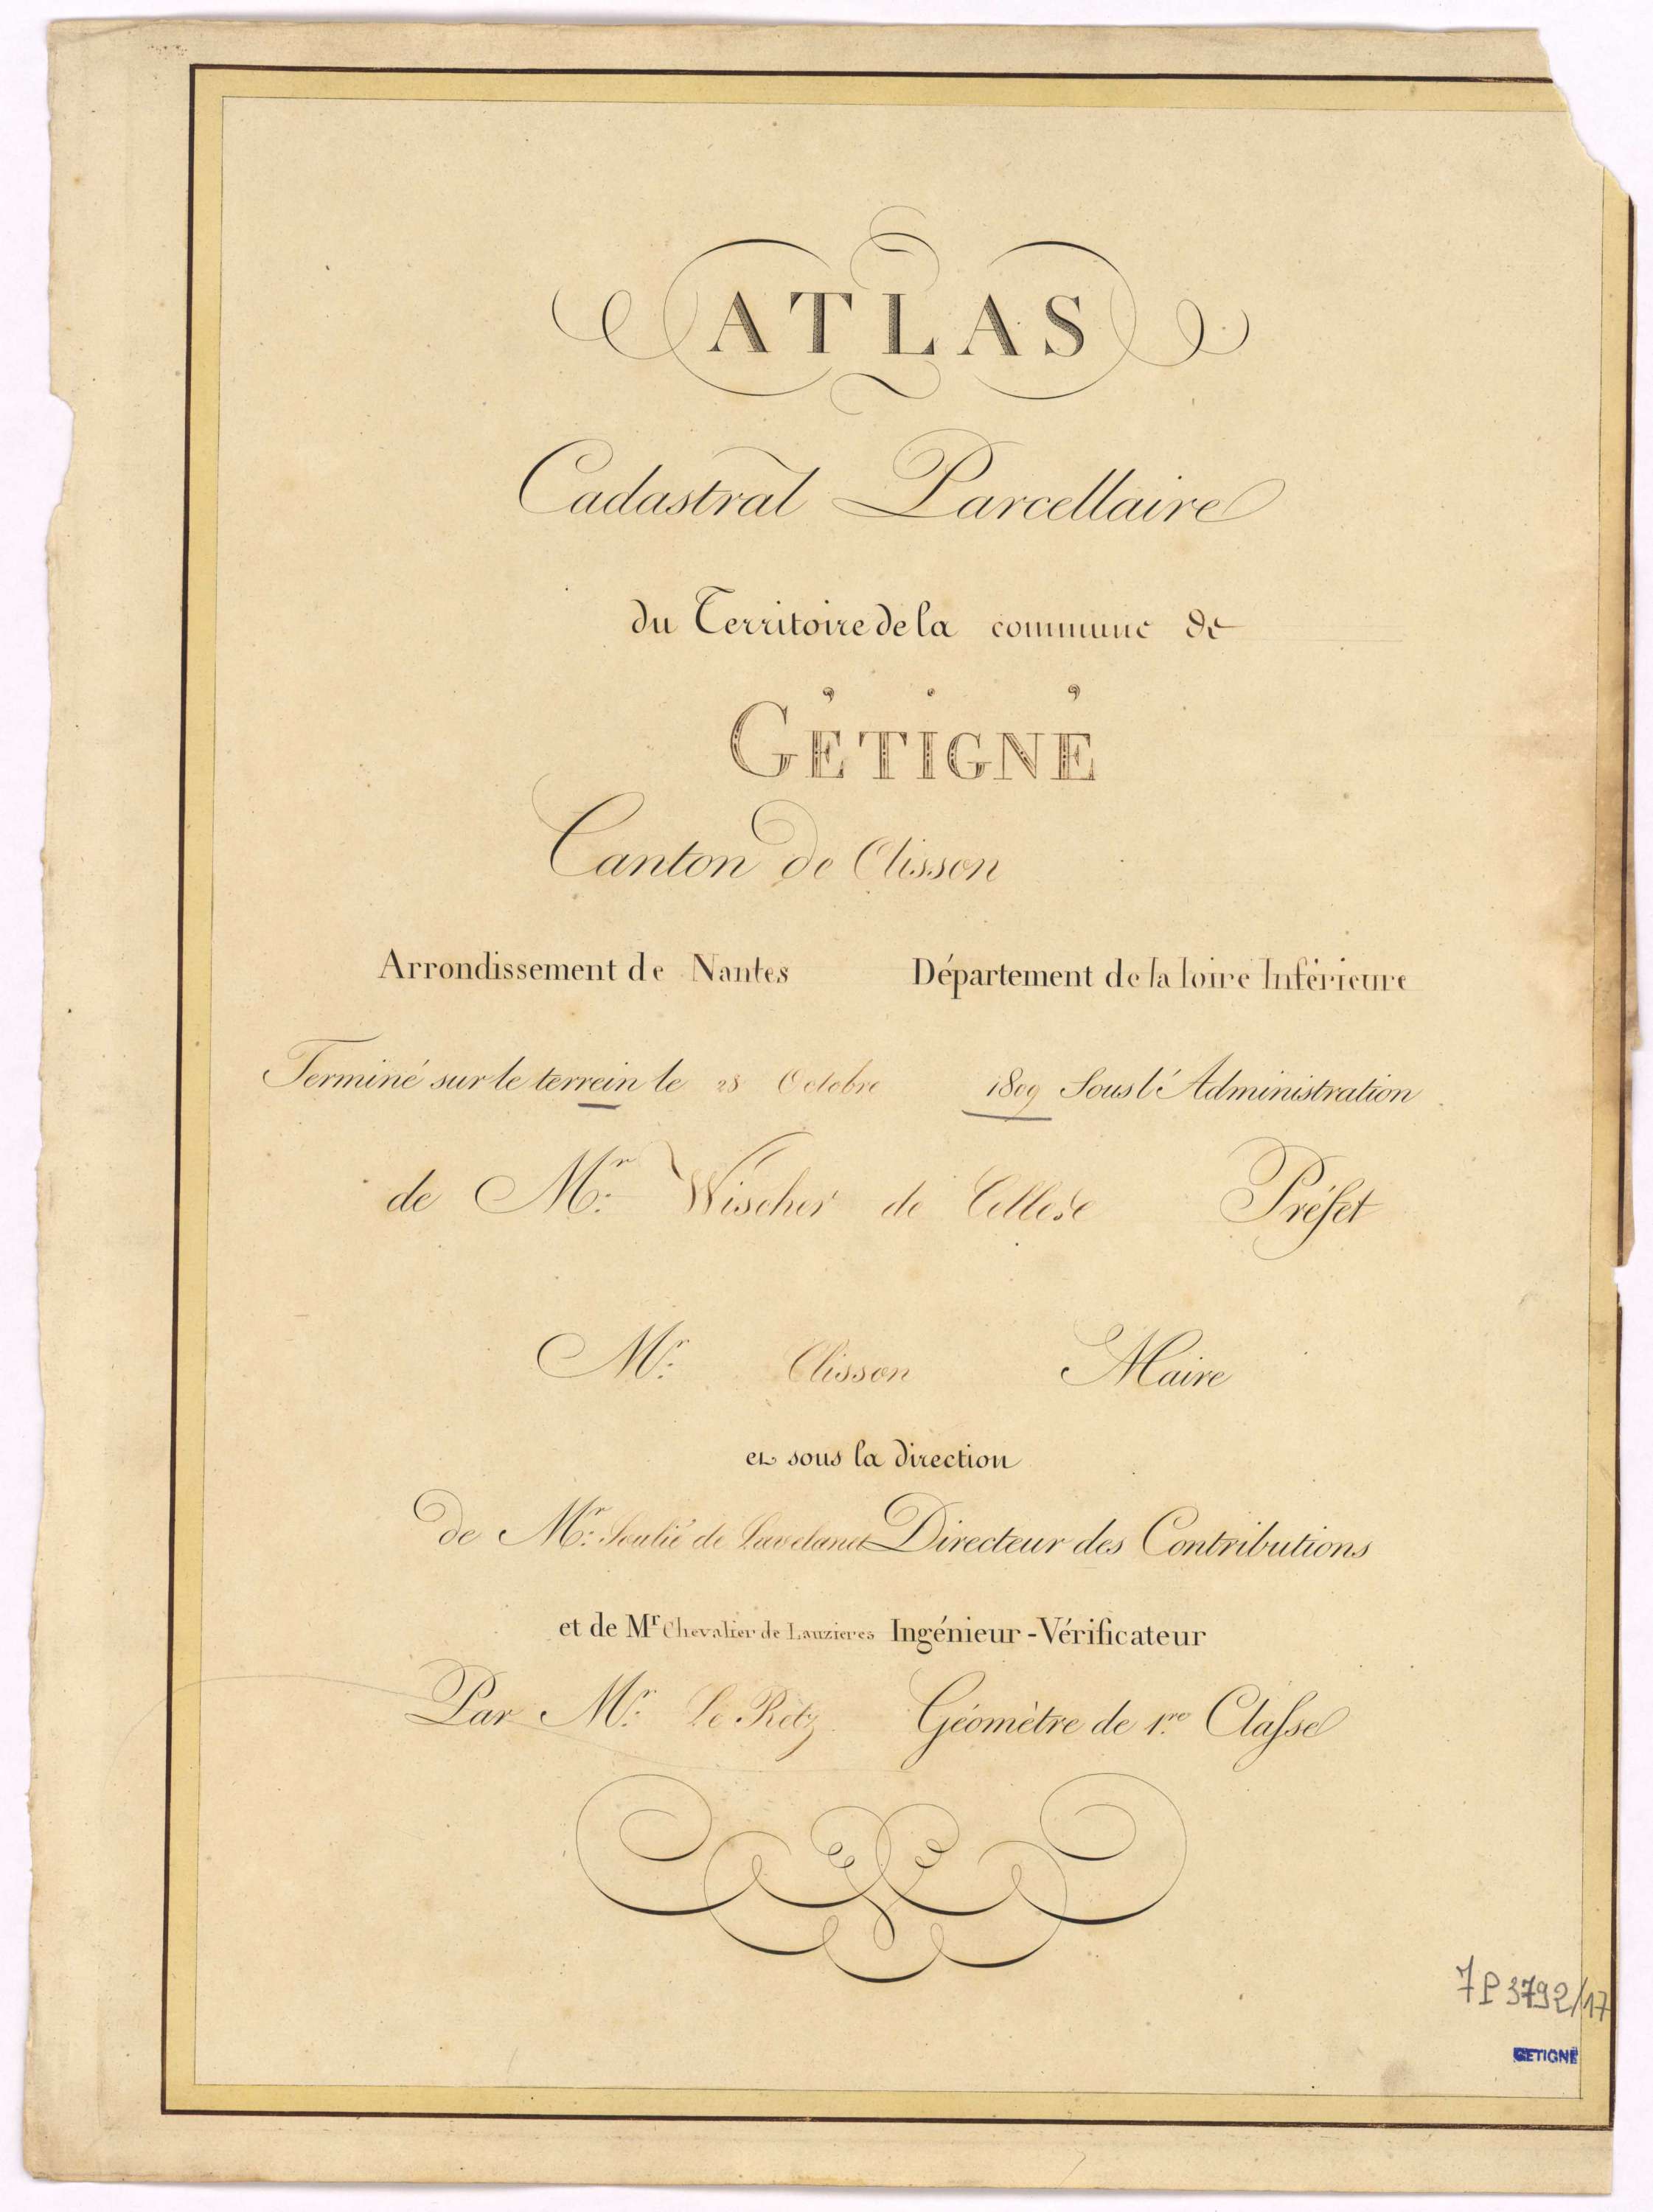 ATLAS
Cadastral Parcellaire
du Territoire de la commune de
GÉTIGNÉ
Canton de Clisson
Arrondissement de Nantes Département de la loire Inférieure
Terminé sur le terrein le 28 Octobre 1809 Sous l'Administration
de Mr. Wischer de Celles Préfet
Mr. Clisson Maire
et sous la direction
de Mr. Soulié de Lavelanet Directeur des Contributions
et de Mr Chevalier de Lauzieres Ingénieur-Vérificateur
Par Mr. Le Retz Géomètre de 1.re Classe
7 P 3792/17
GETIGNÉ